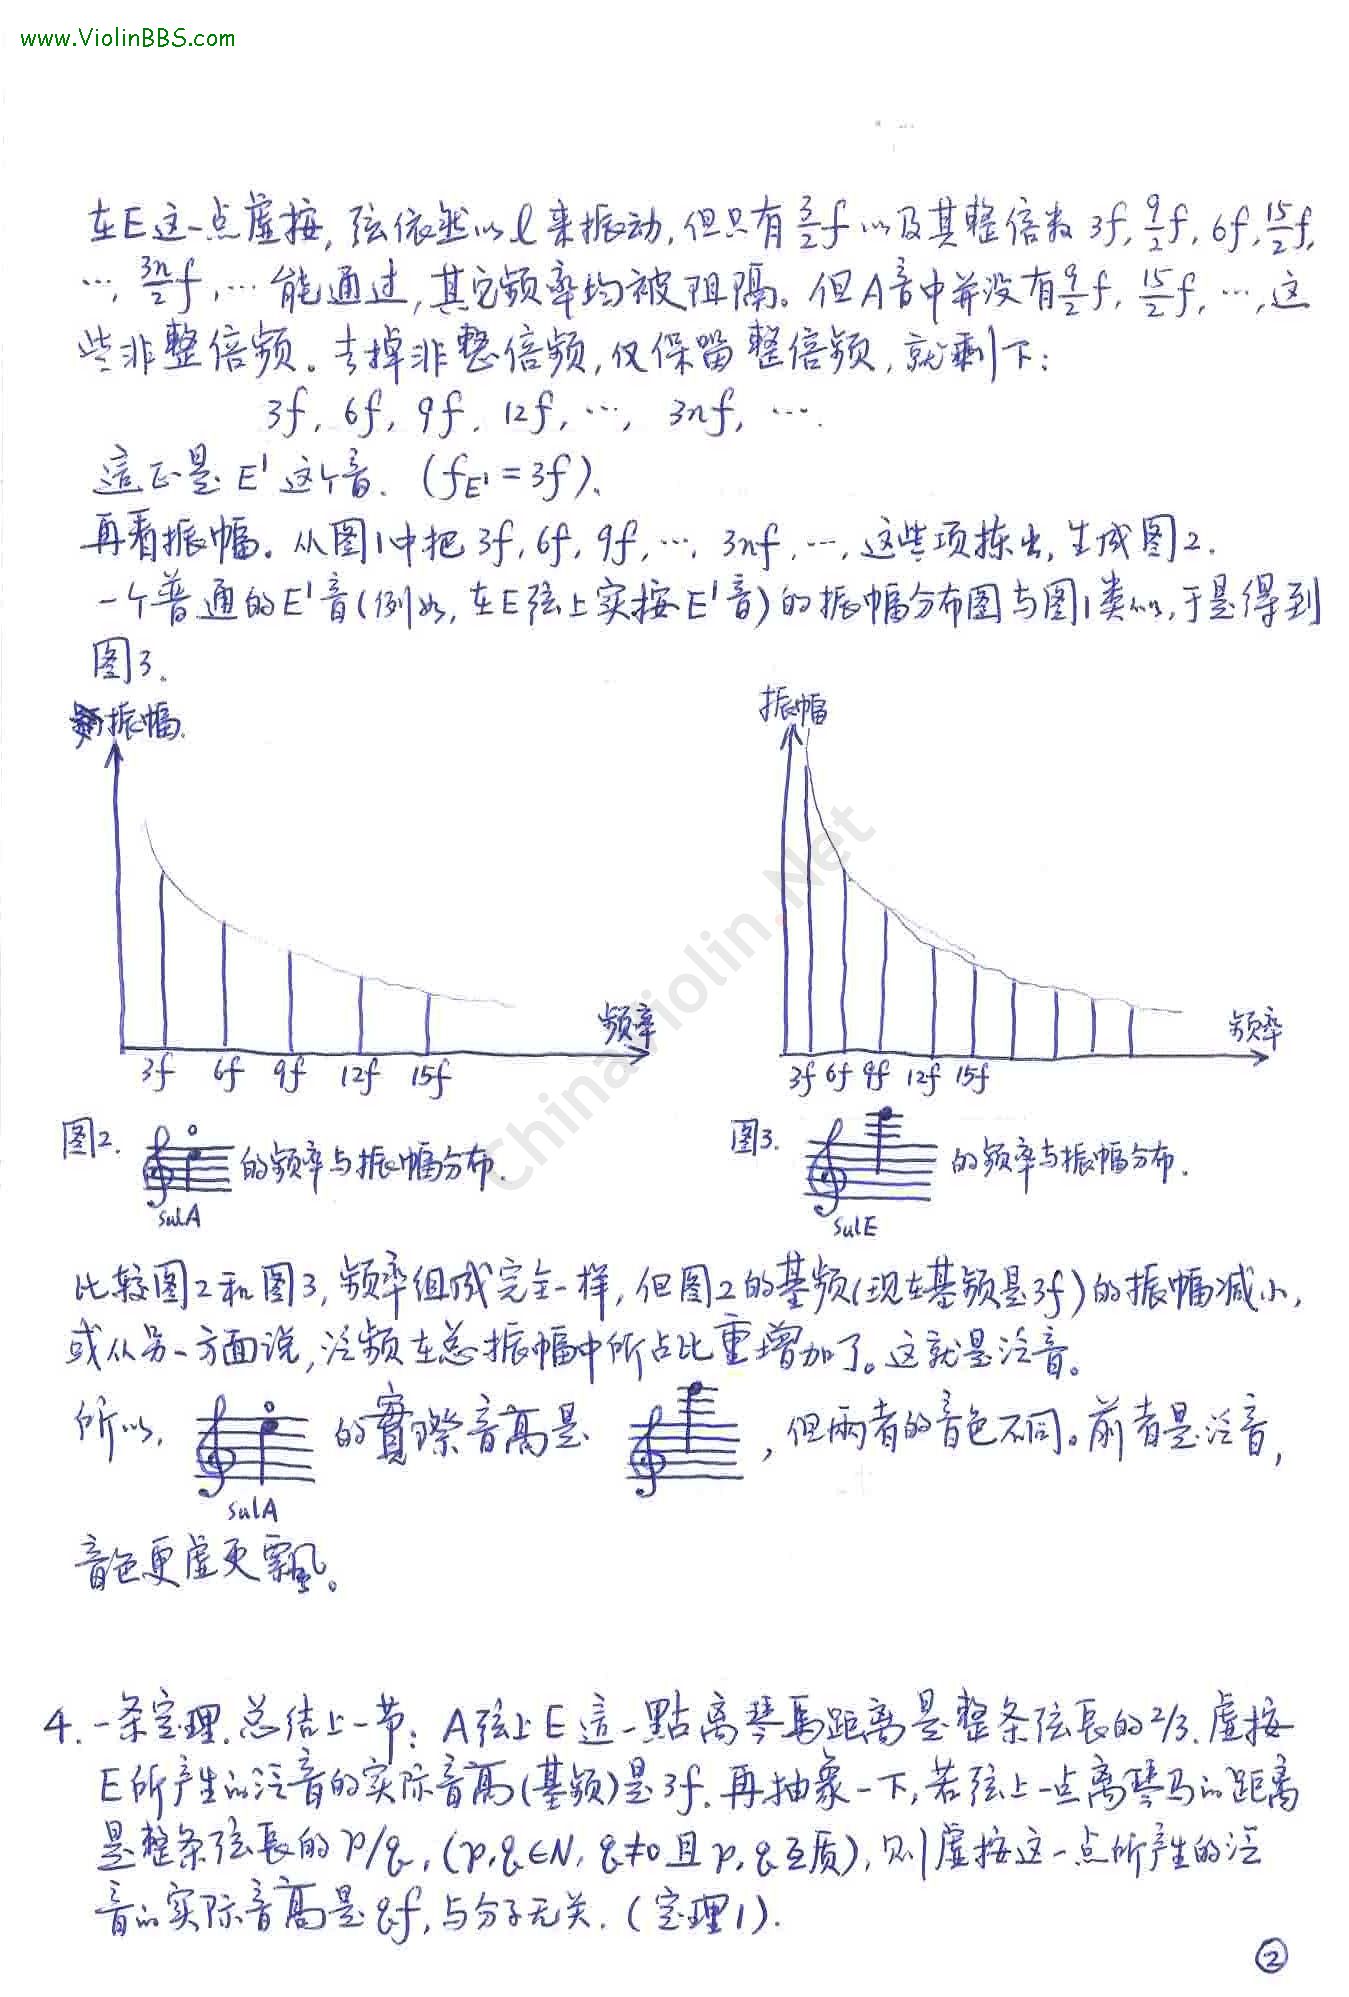 www.ViolinBBS.com
在E这一点虚按, 弦依然以l来振动, 但只有3/2f以及其整倍数 3f, 9/2f, 6f, 15/2f,
…, 3n/2f, … 能通过, 其它频率均被阻隔。但A音中并没有9/2f, 15/2f, …, 这
些非整倍频。去掉非整倍频, 仅保留整倍频, 就剩下:
3f, 6f, 9f, 12f, …, 3nf, ….
這正是E'这个音. (fE'=3f).
再看振幅. 从图1中把3f, 6f, 9f, …, 3nf, …, 这些项拣出, 生成图2.
一个普通的E'音(例如, 在E弦上实按E'音)的振幅分布图与图1类似, 于是得到
图3.
振幅.
振幅
频率
3f 6f 9f 12f 15f
频率
3f 6f 9f 12f 15f
图2. 的频率与振幅分布.
sulA
图3. 的频率与振幅分布.
sulE
ChinaViolin.Net
比较图2和图3, 频率组成完全一样, 但图2的基频(现在基频是3f)的振幅减小,
或从另一方面说, 泛频在总振幅中所占比重增加了。这就是泛音。
所以, 的實際音高是 , 但兩者的音色不同。前者是泛音,
sulA
音色更虚更飄。
4. 一条定理. 总结上一节: A弦上E這一點离琴馬距离是整条弦長的2/3. 虚按
E所产生的泛音的实际音高(基频)是3f. 再抽象一下, 若弦上一点离琴马的距离
是整条弦長的p/q, (p,q∈N, q≠0且p,q互质), 则虚按这一点所产生的泛
音的实际音高是qf, 与分子无关. (定理1).
②